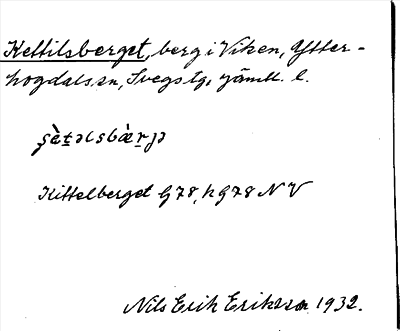 Kettilsberget, berg i Viken, Ytter-
hogdals sn, Svegs tg, Jämtl. l.
Kittelberget G78, h G78 NV
Nils Erik Eriksson 1932.